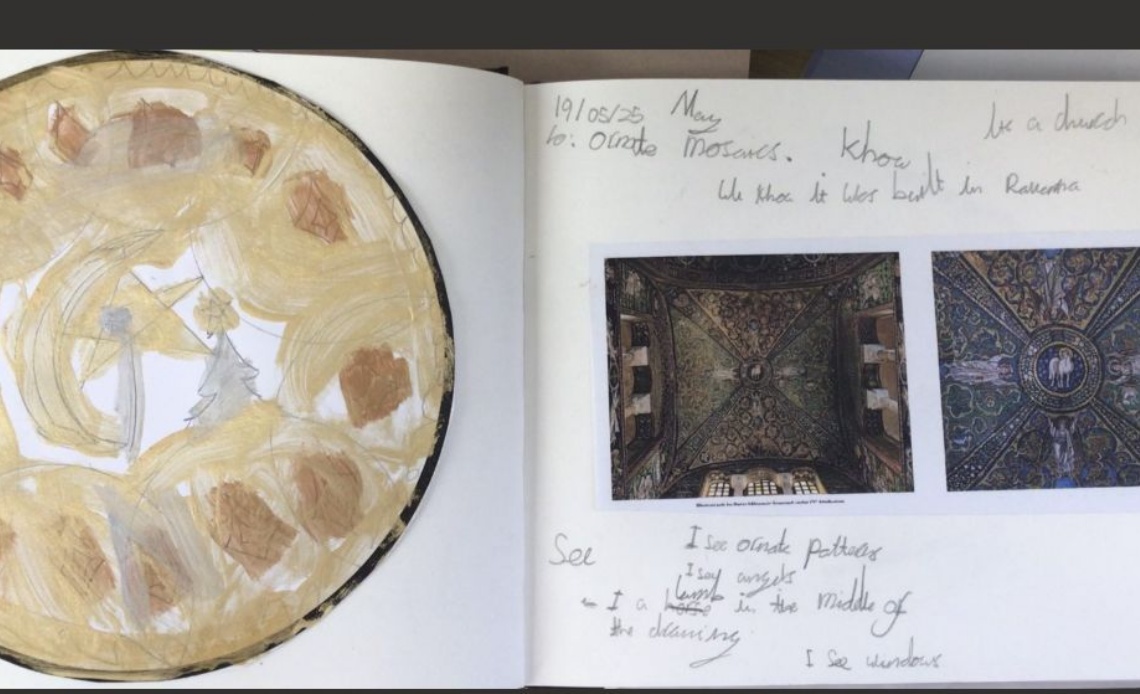 19/05/25 May
Lo: Ornate Mosaics.
Know
be a church
We Khow it was built in Ravenna
See
I see ornate patterns
I say angels
I a horse lamb in the middle of
the drawing
I see windows